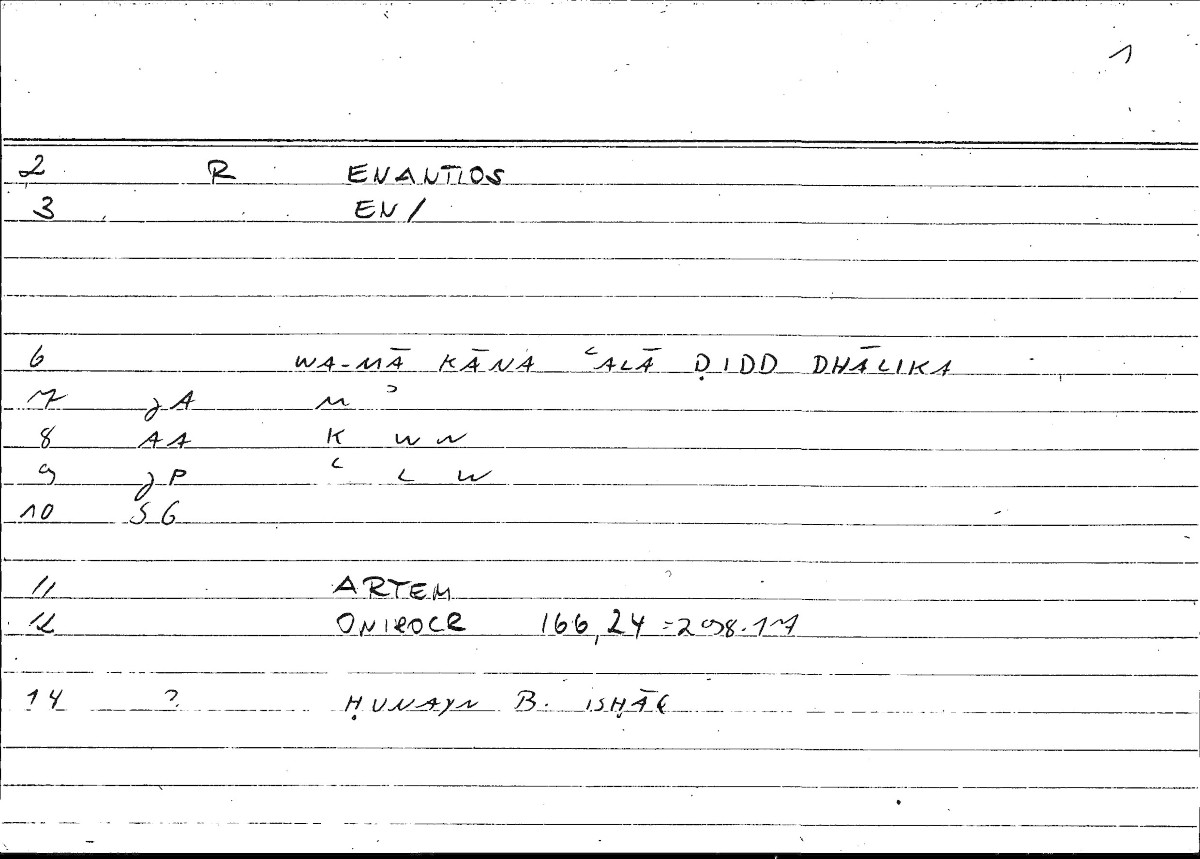 1
2 R ENANTIOS
3 EN/
6 WA-MĀ KĀNA ʿALĀ ḌIDD DHĀLIKA
7 JA M ʾ
8 AA K W N
9 JP ʿ L W
10 SG
11 ARTEM
12 ONIROCR 166,24 =298.17
14 ? ḤUNAYN B. ISḤĀQ